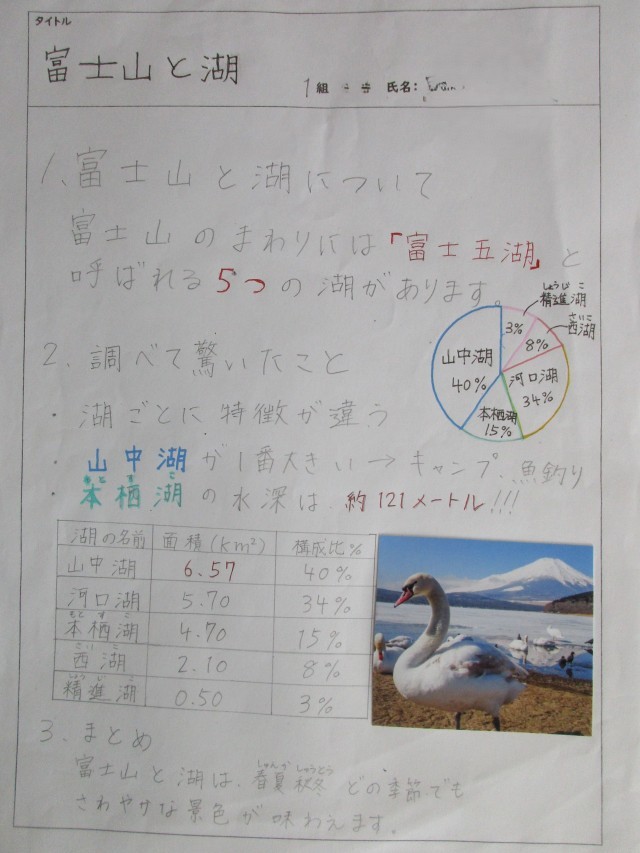 タイトル
富士山と湖
1組 氏名:
1、富士山と湖について
富士山のまわりには「富士五湖」と
呼ばれる5つの湖があります。
しょうじこ
精進湖
3%
さいこ
西湖
8%
山中湖
40%
河口湖
34%
本栖湖
15%
2、調べて驚いたこと
・湖ごとに特徴が違う
・山中湖が1番大きい→キャンプ、魚釣り
もとすこ
・本栖湖の水深は、約121メートル!!!
湖の名前 面積(km²) 構成比%
山中湖 6.57 40%
河口湖 5.70 34%
もとすこ
本栖湖 4.70 15%
さいこ
西湖 2.10 8%
しょうじこ
精進湖 0.50 3%
3、まとめ
しゅんかしゅうとう
富士山と湖は、春夏秋冬どの季節でも
さわやかな景色が味わえます。